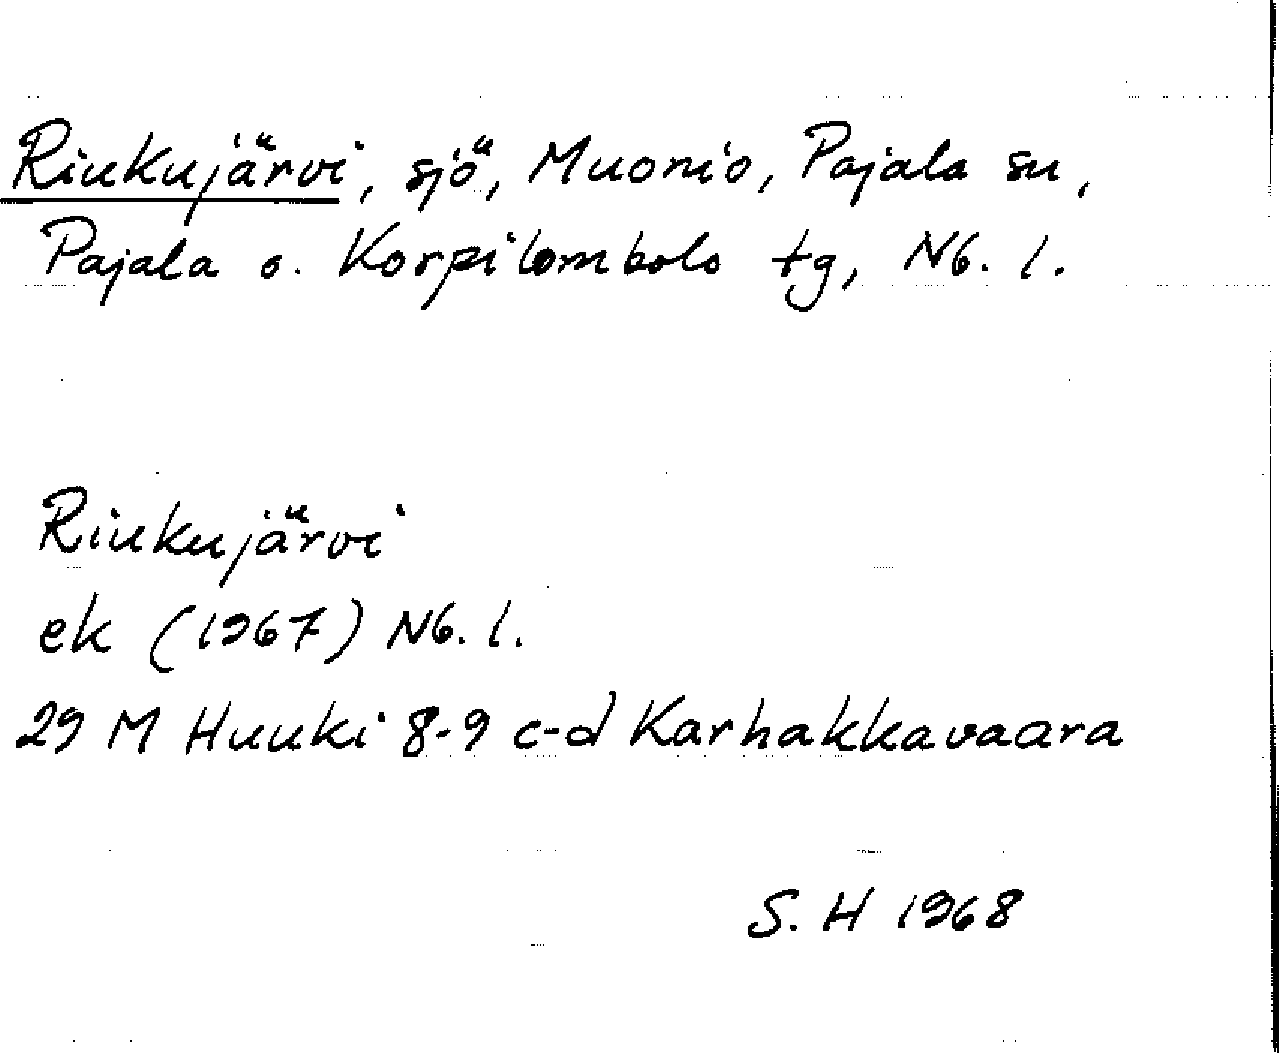 Riukujärvi, sjö, Muonio, Pajala su,
Pajala o. Korpilombolo tg, Nb. l.
Riukujärvi
ek (1967) Nb. l.
29 M Huuki 8-9 c-d Karhakkavaara
S. H 1968